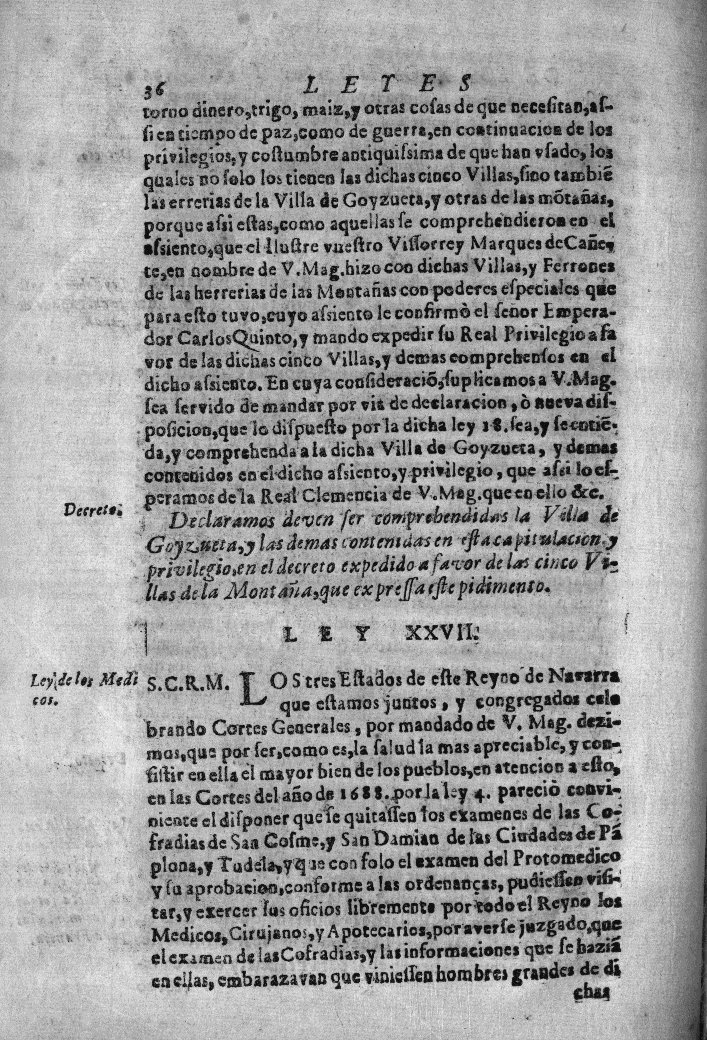 36 L E Y E S
torno dinero, trigo, maiz, y otras cosas de que necesitan, as-
si en tiempo de paz, como de guerra, en continuacion de los
privilegios, y costumbre antiquissima de que han vsado, los
quales no solo los tienen las dichas cinco Villas, sino tambiẽ
las errerias de la Villa de Goyzueta, y otras de las mõtañas,
porque assi estas, como aquellas se comprehendieron en el
assiento, que el Ilustre vuestro Vissorrey Marques de Cañe-
te, en nombre de V. Mag. hizo con dichas Villas, y Ferrones
de las herrerias de las Montañas con poderes especiales que
para esto tuvo, cuyo assiento le confirmò el señor Empera-
dor Carlos Quinto, y mando expedir su Real Privilegio a fa
vor de las dichas cinco Villas, y demas comprehensos en el
dicho assiento. En cuya consideraciõ, suplicamos a V. Mag.
sea servido de mandar por via de declaracion, ò nueva dis-
posicion, que lo dispuesto por la dicha ley 18. sea, y se entiẽ-
da, y comprehenda a la dicha Villa de Goyzueta, y demas
contenidos en el dicho assiento, y privilegio, que assi lo es-
peramos de la Real Clemencia de V. Mag. que en ello &c.
Decreto.
Declaramos deven ser comprehendidas la Villa de
Goyzueta, y las demas contenidas en esta capitulacion, y
privilegio, en el decreto expedido a favor de las cinco Vi-
llas de la Montaña, que expressa este pidimento.
L E Y XXVII.
Ley de los Medi
cos.
S.C.R.M. LOS tres Estados de este Reyno de Navarra
que estamos juntos, y congregados cele
brando Cortes Generales, por mandado de V. Mag. dezi-
mos, que por ser, como es, la salud la mas apreciable, y con-
sistir en ella el mayor bien de los pueblos, en atencion a esto,
en las Cortes del año de 1688. por la ley 4. pareciò convi-
niente el disponer que se quitassen los examenes de las Co-
fradias de San Cosme, y San Damian de las Ciudades de Pã
plona, y Tudela, y que con solo el examen del Protomedico
y su aprobacion, conforme a las ordenanças, pudiessen visi-
tar, y exercer sus oficios libremente por todo el Reyno los
Medicos, Cirujanos, y Apotecarios, por averse juzgado, que
el examen de las Cofradias, y las informaciones que se haziã
en ellas, embarazavan que viniessen hombres grandes de di
chas